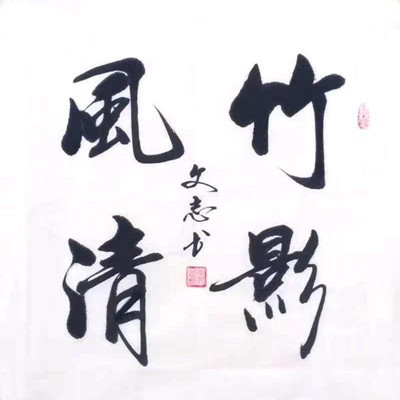 竹影
風清
文志书